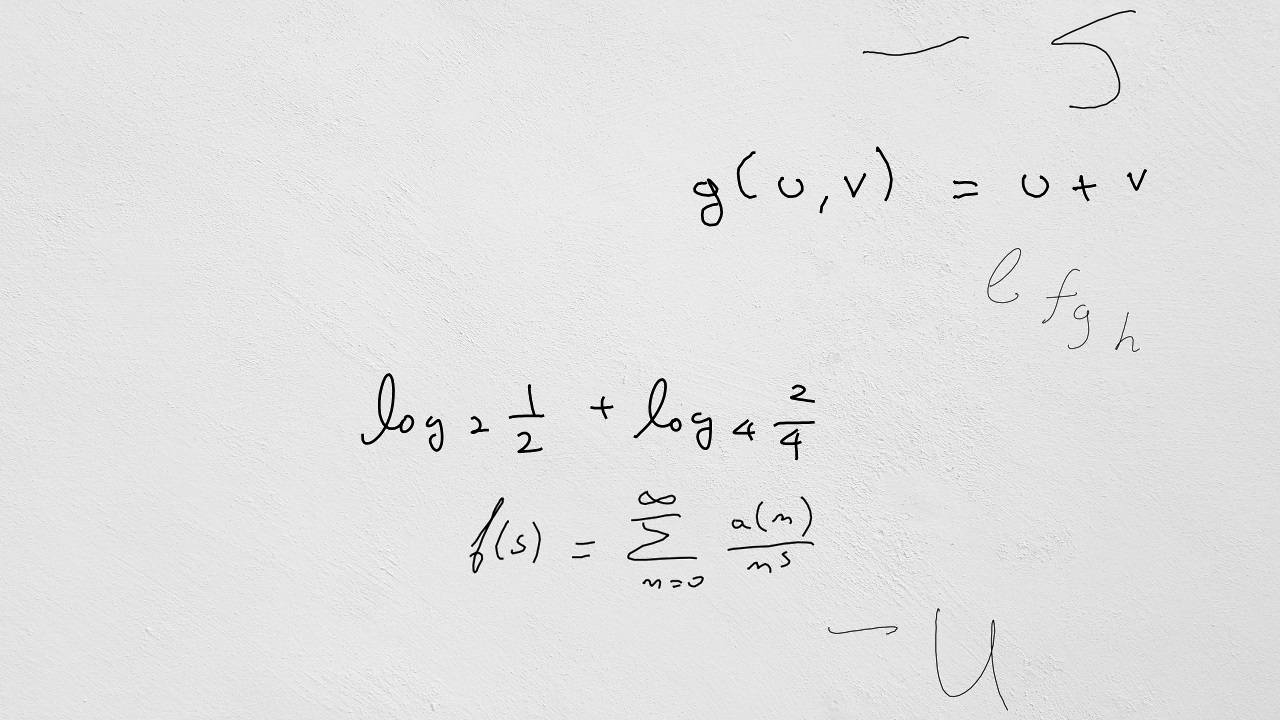 - 5
g(u, v) = u + v
l_{f_{g_h}}
log_2 \frac{1}{2} + log_4 \frac{2}{4}
f(s) = \sum_{n=0}^{\infty} \frac{a(n)}{n^s}
- U